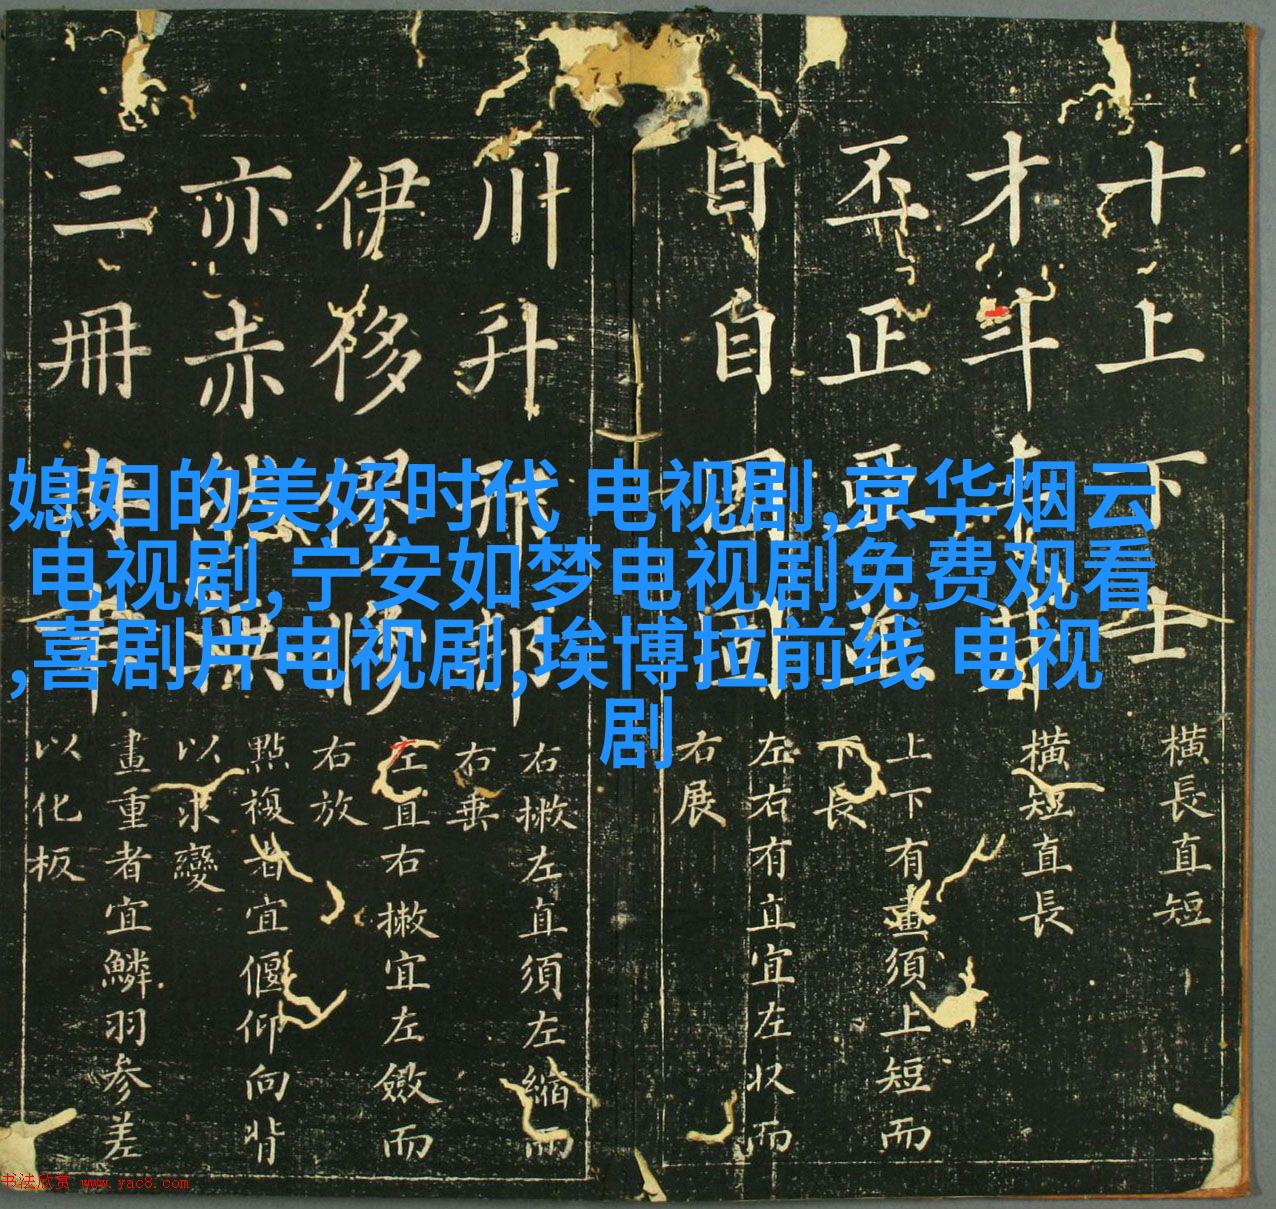 媳妇的美好时代 电视剧,京华烟云
电视剧,宁安如梦电视剧免费观看
,喜剧片电视剧,埃博拉前线 电视
剧
十上下士
橫長直短
才斗
橫短直長
丕正
上下有畫須上短而
下長
目自
左右有直宜左收而
右展
川升
右撇左直須左縮而
右垂
伊侈
左直右撇宜左斂而
右放
亦赤
點複者宜偃仰向背
以求變
三冊
畫重者宜鱗羽參差
以化板
书法欣赏 www.yac8.com